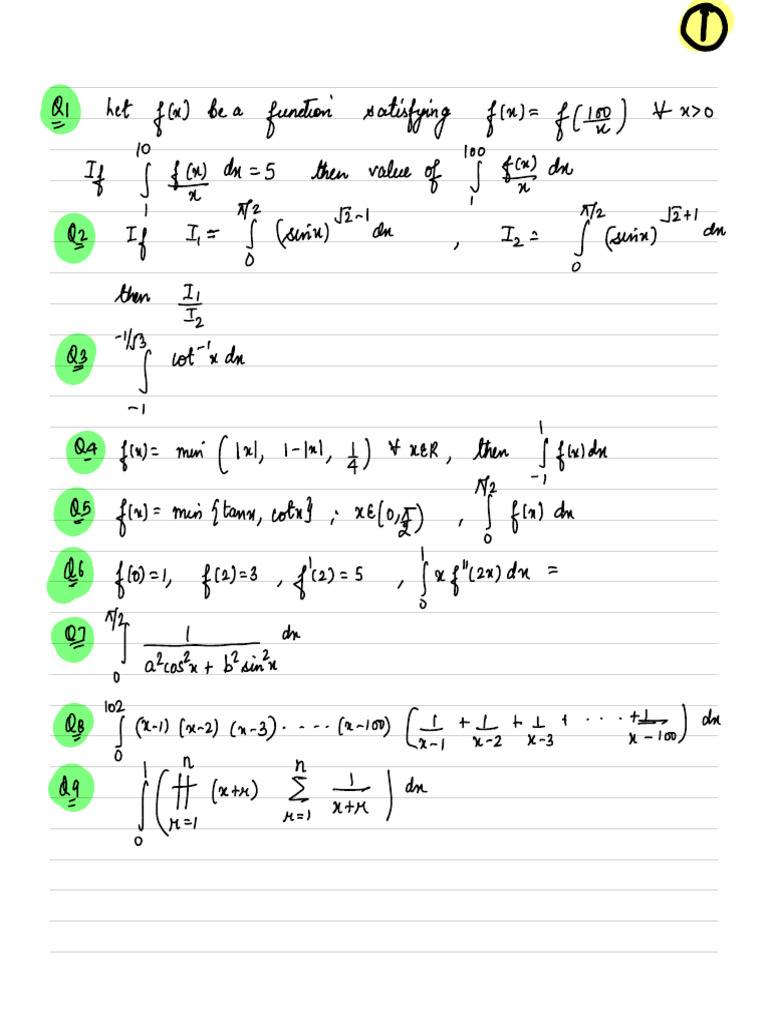 1
Q1 Let f(x) be a function satisfying f(x) = f(100/x) ∀ x>0
If ∫_1^10 f(x)/x dx = 5 then value of ∫_1^100 f(x)/x dx
Q2 If I₁ = ∫_0^{π/2} (sinx)^{√2-1} dx , I₂ = ∫_0^{π/2} (sinx)^{√2+1} dx
then I₁/I₂
Q3 ∫_{-1}^{-1/√3} cot⁻¹x dx
Q4 f(x) = min (|x|, 1-|x|, 1/4) ∀ x∈R, then ∫_{-1}^1 f(x)dx
Q5 f(x) = min {tanx, cotx} ; x∈(0, π/2) , ∫_0^{π/2} f(x) dx
Q6 f(0)=1, f(2)=3 , f'(2)=5 , ∫_0^1 x f''(2x) dx =
Q7 ∫_0^{π/2} 1/(a²cos²x + b²sin²x) dx
Q8 ∫_0^102 (x-1) (x-2) (x-3)·-----(x-100) (1/(x-1) + 1/(x-2) + 1/(x-3) + ····+1/(x-100)) dx
Q9 ∫_0^1 (∏_{r=1}^n (x+r) ∑_{r=1}^n 1/(x+r)) dx